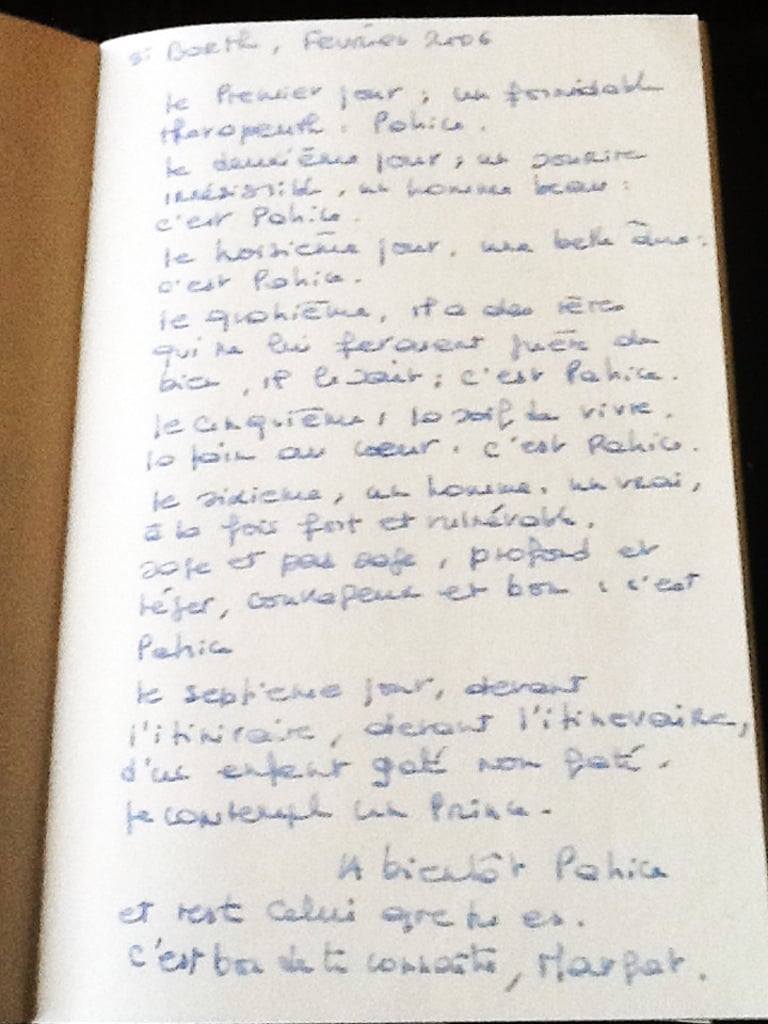 St Barth, Février 2006
le Premier jour ; un formidable
therapeuth : Patrice.
le deuxième jour ; un sourire
irrésistible, un homme beau :
c'est Patrice.
le troisième jour, une belle âme :
c'est Patrice.
le quatrième, il a des rêves
qui ne lui feraient guère du
bien, il le sait ; c'est Patrice.
le cinquième, la soif de vivre.
la faim au cœur. c'est Patrice.
le sixième, un homme. un vrai,
à la fois fort et vulnérable,
sage et pas sage, profond et
léger, courageux et bon : c'est
Patrice
le septième jour, devant
l'itiniraire, devant l'itineraire,
d'un enfant gaté non gaté.
je contemple un Prince.
A bientôt Patrice
et reste celui que tu es.
C'est bon de te connaitre,